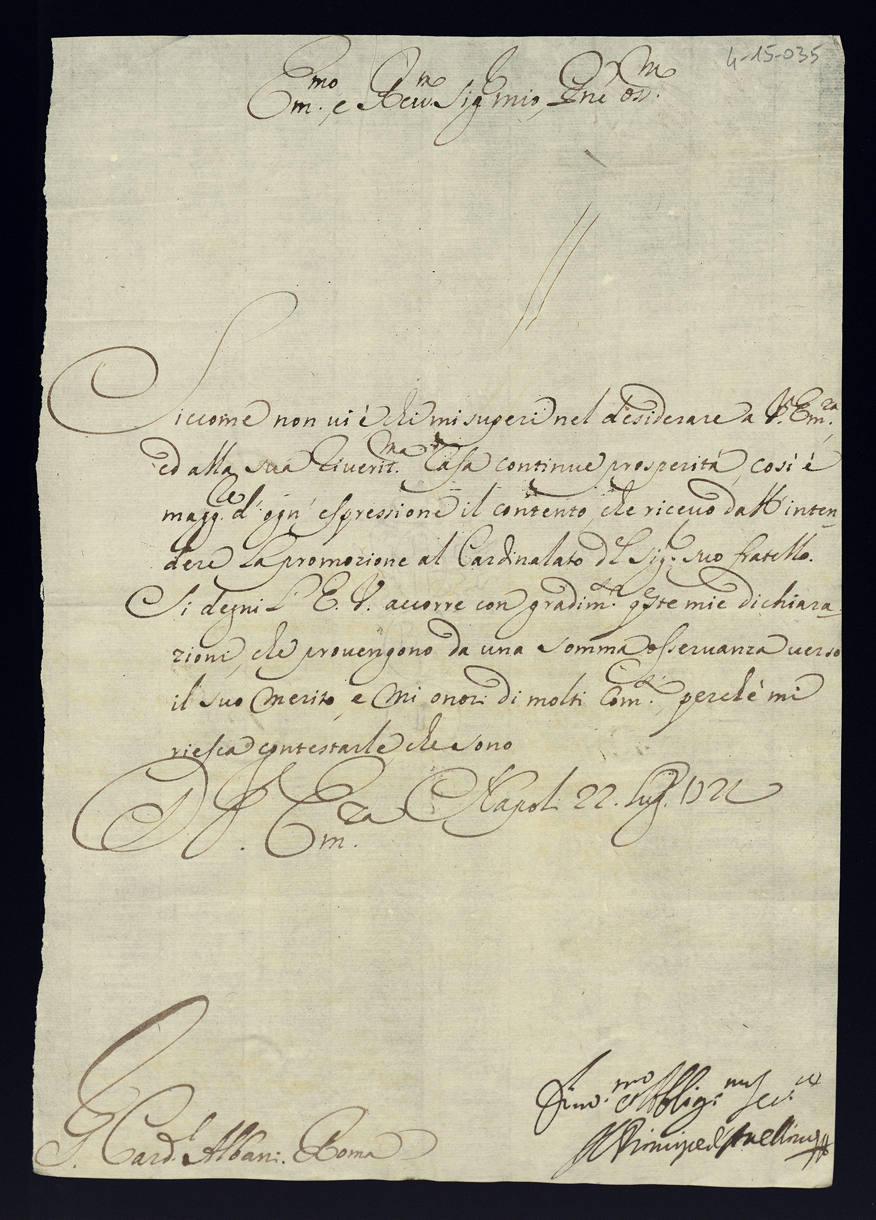 4-15-035
Em.mo e Reu.mo Sig. mio, Pne oss.mo
Siccome non ui è chi mi superi nel desiderare a V. Em.za,
ed alla sua riuerit.ma Casa continue prosperità, così è
magg.re d'ogn' espressione il contento, che riceuo dall' inten-
dere la promozione al Cardinalato del Sig. suo fratello.
Si degni l' E. V. accorre con gradim.to q.ste mie dichiara-
zioni, che prouengono da una somma osseruanza uerso
il suo merito, e mi onori di molti Com.di, perchè mi
riesca contestarle che sono
D. V. Em.za Napoli 22. lug. 1721
Diu.mo et Obblig.mo ser.re
Il Principe d'Auellino
S. Card.l Albani. Roma